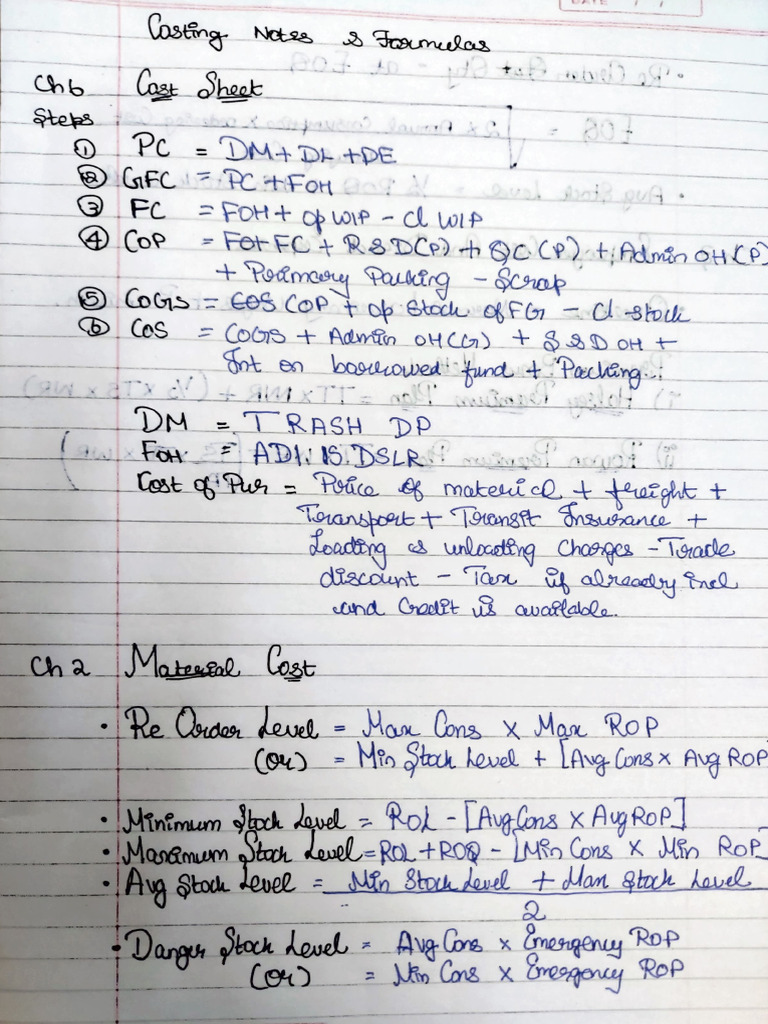 DATE
Costing Notes & Formulas
Ch 6 Cost Sheet
Steps
① PC = DM + DL + DE
② GFC = PC + FOH
③ FC = FOH + op WIP - cl WIP
④ COP = FC + R&D(P) + QC(P) + Admin OH(P)
+ Primary Packing - Scrap
⑤ COGS = COP + op Stock of FG - cl stock
⑥ COS = COGS + Admin OH(G) + S&D OH +
Int on borrowed fund + Packing.
DM = TRASH DP
FOH = ADI IS DSLR
Cost of Pur = Price of material + freight +
Transport + Transit Insurance +
Loading & unloading Charges - Trade
discount - Tax if already incl
and Credit is available.
Ch 2 Material Cost
• Re Order Level = Max Cons × Max ROP
(or) = Min Stock Level + [Avg Cons × Avg ROP
• Minimum Stock Level = ROL - [Avg Cons × Avg ROP]
• Maximum Stock Level = ROL + ROQ - [Min Cons × Min ROP]
• Avg Stock Level = Min Stock Level + Max Stock Level
2
• Danger Stock Level = Avg Cons × Emergency ROP
(or) = Min Cons × Emergency ROP